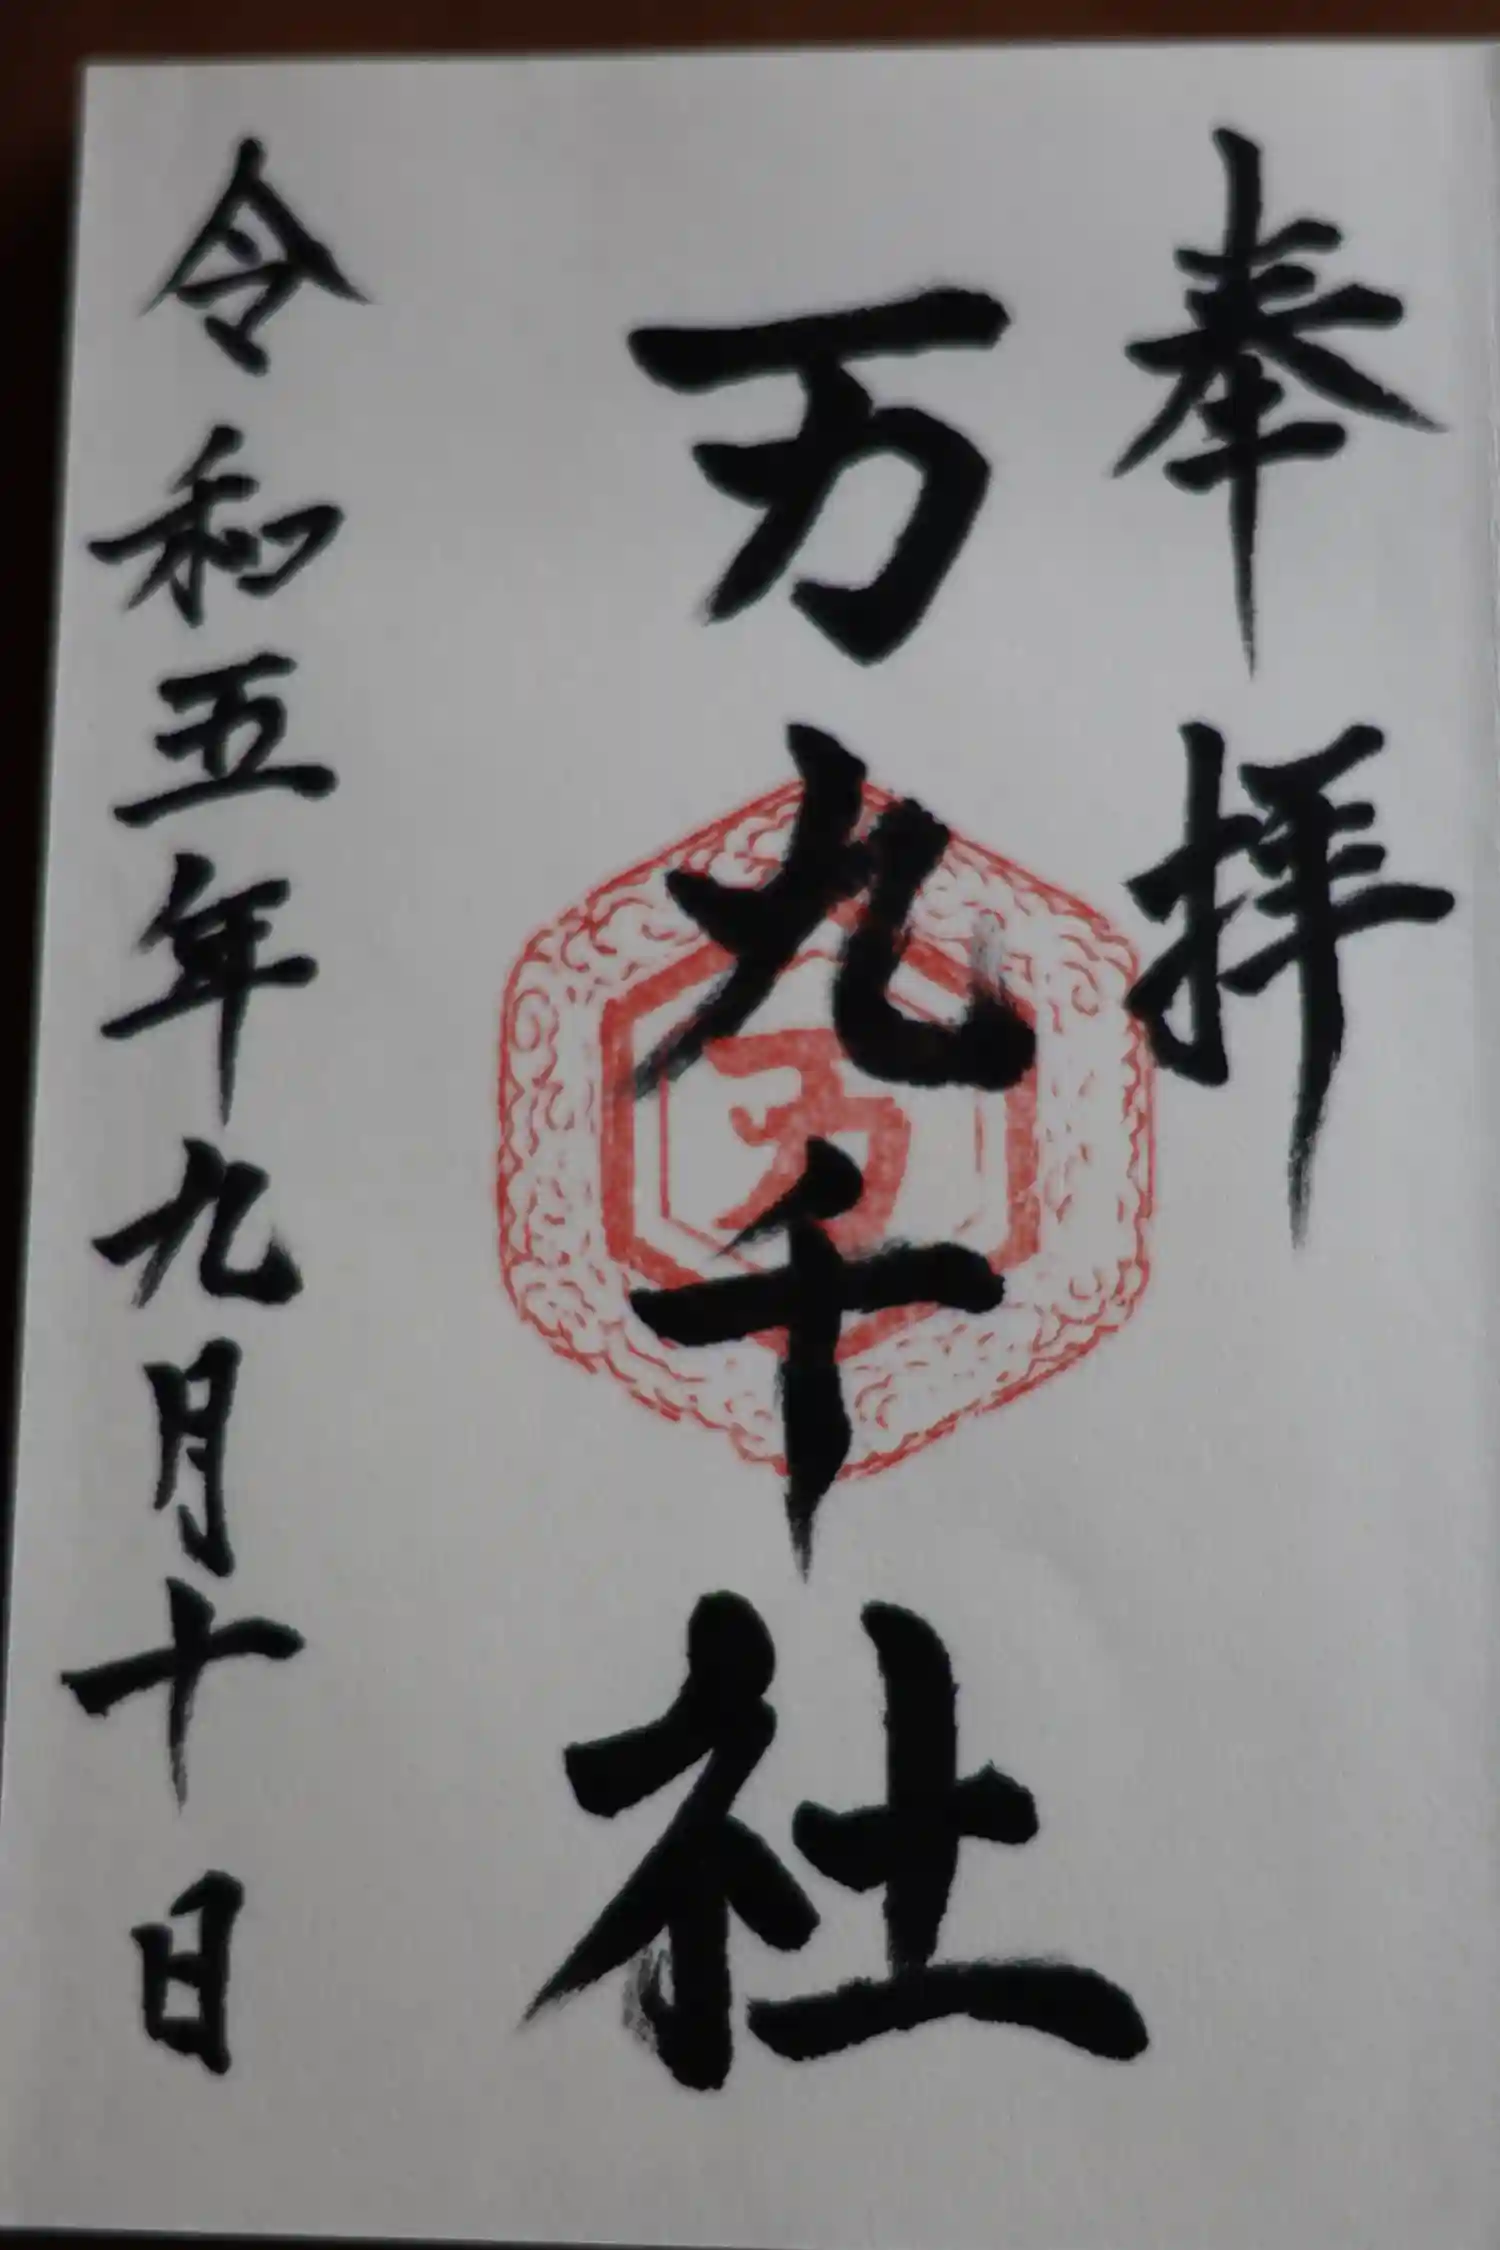 奉拝
万九千社
万
令和五年九月十日